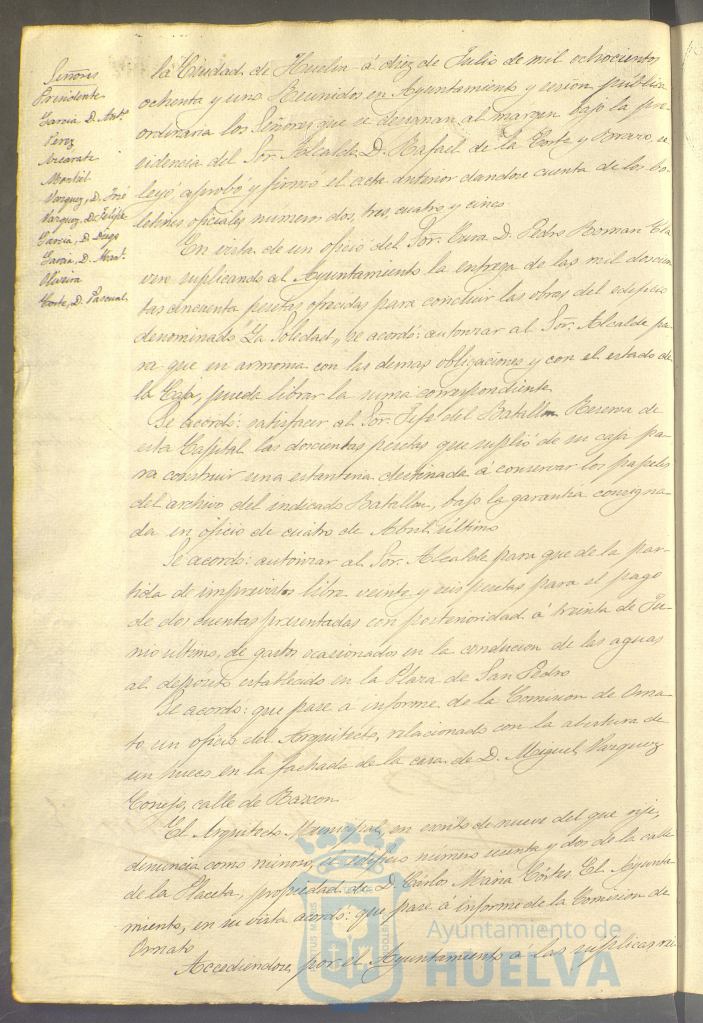 Señores
Presidente
Garcia D. Antº
Perez
Azcarate
Montiel
Vazquez, D. José
Vazquez, D. Felipe
Garcia, D. Diego
Garcia, D. Manl.
Oliveira
Corte, D. Pascual
la Ciudad de Huelva á diez de Julio de mil ochocientos
ochenta y uno Reunidos en Ayuntamiento y sesión pública
ordinaria los Señores que se designan al margen bajo la pre-
sidencia del Sor. Alcalde D. Rafael de la Corte y Bravo, se
leyó aprobó y firmó el acta anterior dandose cuenta de los bo-
letines oficiales numeros dos, tres, cuatro y cinco
En vista de un oficio del Sor. Cura D. Pedro Roman Cla
vero suplicando al Ayuntamiento la entrega de las mil doscien
tas cincuenta pesetas ofrecidas para concluir las obras del edificio
denominado "La Soledad", se acordó: autorizar al Sor. Alcalde pa-
ra que en armonia con las demas obligaciones y con el estado de
la Caja, pueda librar la suma correspondiente
Se acordó: satisfacer al Sor. Jefe del Batallon Reserva de
esta Capital las doscientas pesetas que suplió de su caja pa-
ra construir una estanteria destinada á conservar los papeles
del archivo del indicado Batallon, bajo la garantia consigna-
da en oficio de cuatro de Abril último
Se acordó: autorizar al Sor. Alcalde para que de la par-
tida de imprevistos libre veinte y seis pesetas para el pago
de dos cuentas presentadas con posterioridad á treinta de Ju-
nio último, de gastos ocacionados en la conducion de las aguas
al deposito establecido en la Plaza de San Pedro
Se acordó: que pase a informe de la Comision de Orna-
to, un oficio del Arquitecto, relacionado con la abertura de
un hueco en la fachada de la casa de D. Miguel Vazquez
Conejo, calle de Rascon
El Arquitecto Municipal, en escrito de nueve del que rije,
denuncia como ruinoso, el edificio número cuenta y dos de la calle
de la Placeta, propiedad de D. Carlos Maria Cortes. El Ayunta
miento, en su vista acordó: que pase á informe de la Comision de
Ornato
Accediendose por el Ayuntamiento á las suplicas
Ayuntamiento de
HUELVA